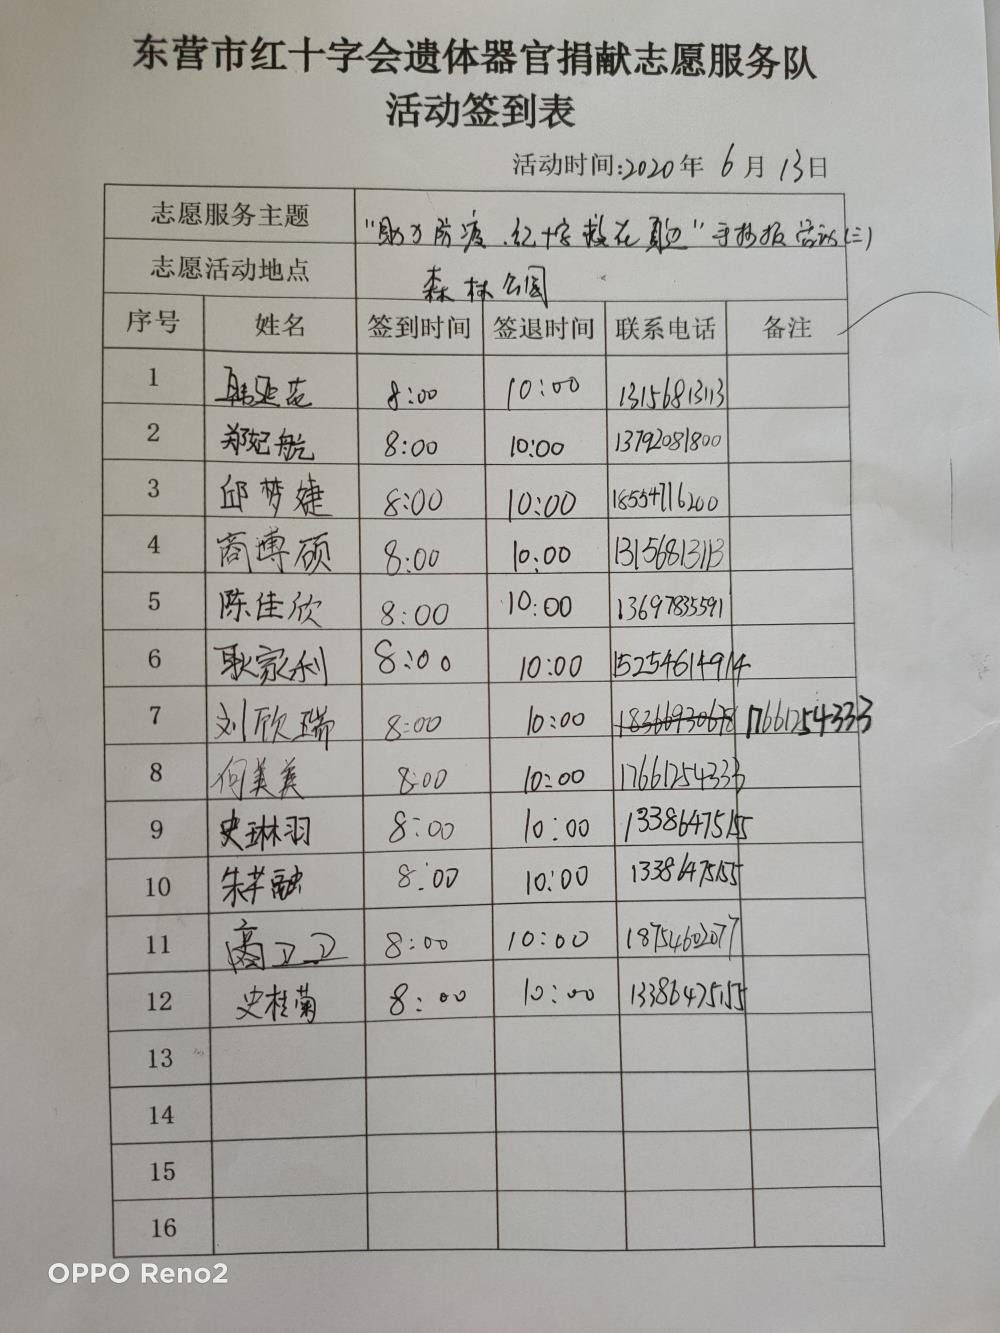 东营市红十字会遗体器官捐献志愿服务队
活动签到表
活动时间:2020年 6月 13日
志愿服务主题 "助力防疫.红十字救在身边"手抄报活动(三)
志愿活动地点 森林公园
序号 姓名 签到时间 签退时间 联系电话 备注
1 8:00 10:00 13156813113
2 郑妃航 8:00 10:00 13792081800
3 邱梦婕 8:00 10:00 18554716200
4 商博硕 8:00 10:00 13156813113
5 陈佳欣 8:00 10:00 13697835591
6 耿家利 8:00 10:00 15254614914
7 刘欣瑞 8:00 10:00 18366930678 17661254333
8 何美美 8:00 10:00 17661254333
9 史琳羽 8:00 10:00 13386475155
10 朱芊融 8:00 10:00 13386475155
11 8:00 10:00 18754602077
12 史桂菊 8:00 10:00 13386475155
13
14
15
16
OPPO Reno2